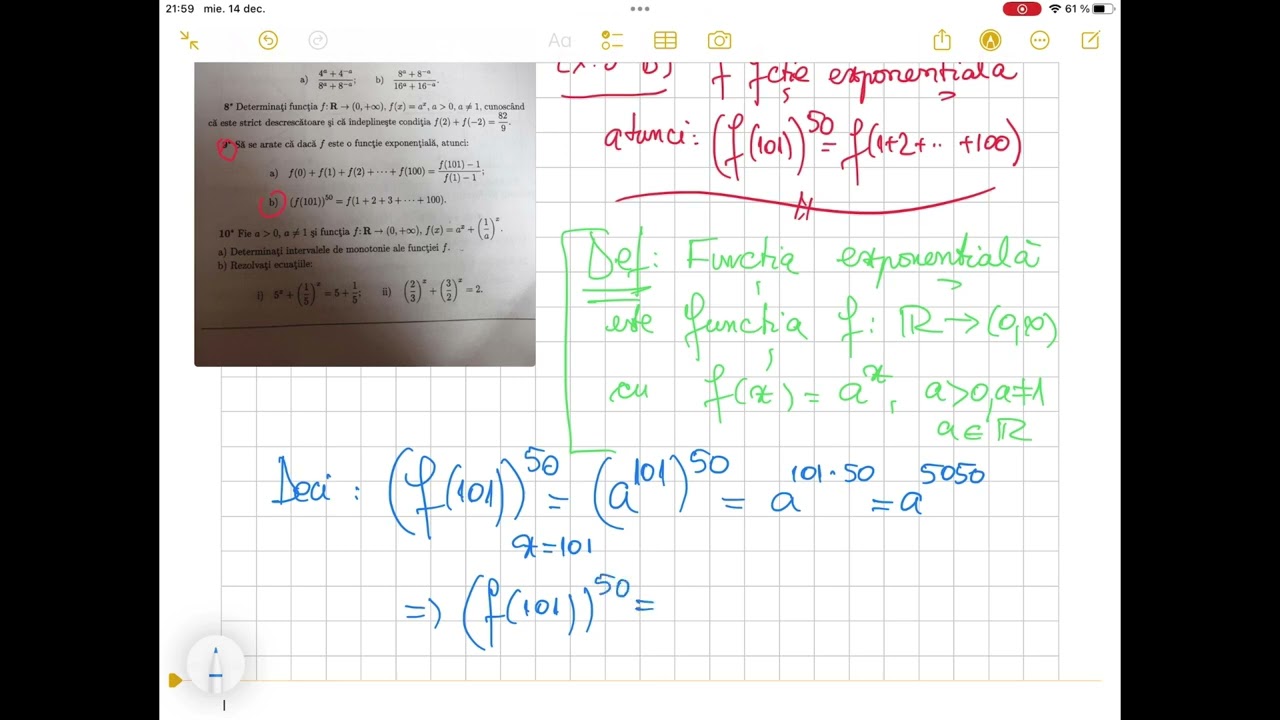 21:59 mie. 14 dec.
61 %
Aa
a) \frac{4^a + 4^{-a}}{8^a + 8^{-a}}; b) \frac{8^a + 8^{-a}}{16^a + 16^{-a}}.
8* Determinați funcția f: R → (0, +∞), f(x) = a^x, a > 0, a ≠ 1, cunoscând
că este strict descrescătoare și că îndeplinește condiția f(2) + f(−2) = \frac{82}{9}.
9* Să se arate că dacă f este o funcție exponențială, atunci:
a) f(0) + f(1) + f(2) + ··· + f(100) = \frac{f(101) − 1}{f(1) − 1};
b) (f(101))^{50} = f(1 + 2 + 3 + ··· + 100).
10* Fie a > 0, a ≠ 1 și funcția f: R → (0, +∞), f(x) = a^x + (\frac{1}{a})^x.
a) Determinați intervalele de monotonie ale funcției f.
b) Rezolvați ecuațiile:
i) 5^x + (\frac{1}{5})^x = 5 + \frac{1}{5}; ii) (\frac{2}{3})^x + (\frac{3}{2})^x = 2.
f fcție exponențială
atunci: (f(101))^{50} = f(1+2+·· +100)
Def: Funcția exponențială
este funcția f: ℝ → (0,∞)
cu f(x) = a^x, a>0, a≠1
a∈ℝ
Deci: (f(101))^{50} = (a^{101})^{50} = a^{101·50} = a^{5050}
x=101
=> (f(101))^{50} =